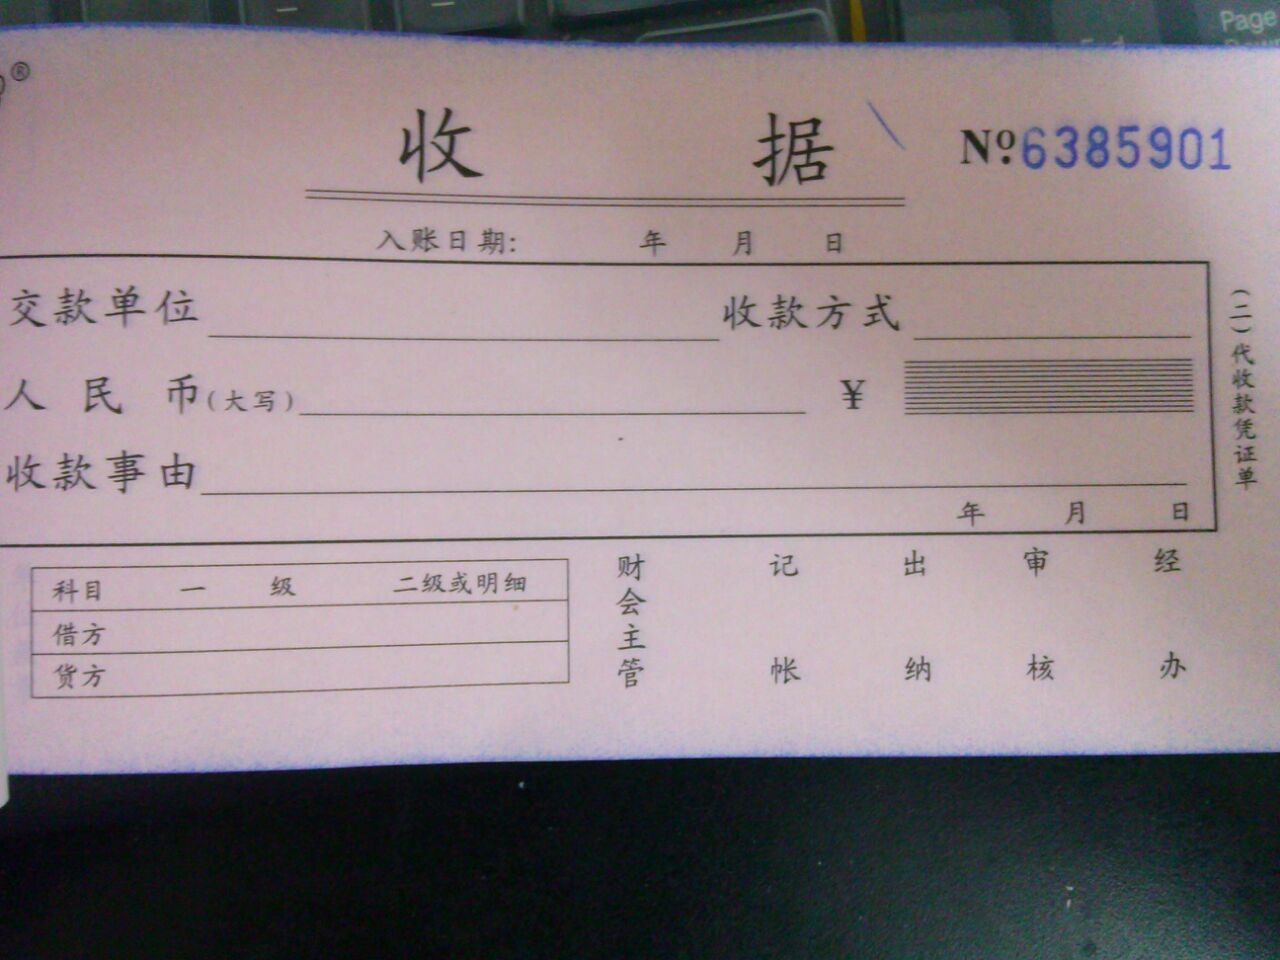 Page
®
收 据
Nº6385901
入账日期: 年 月 日
交款单位 收款方式
人民币(大写) ¥
收款事由
年 月 日
(二)代收款凭证单
科目 一 级 二级或明细
借方
货方
财会主管 记帐 出纳 审核 经办